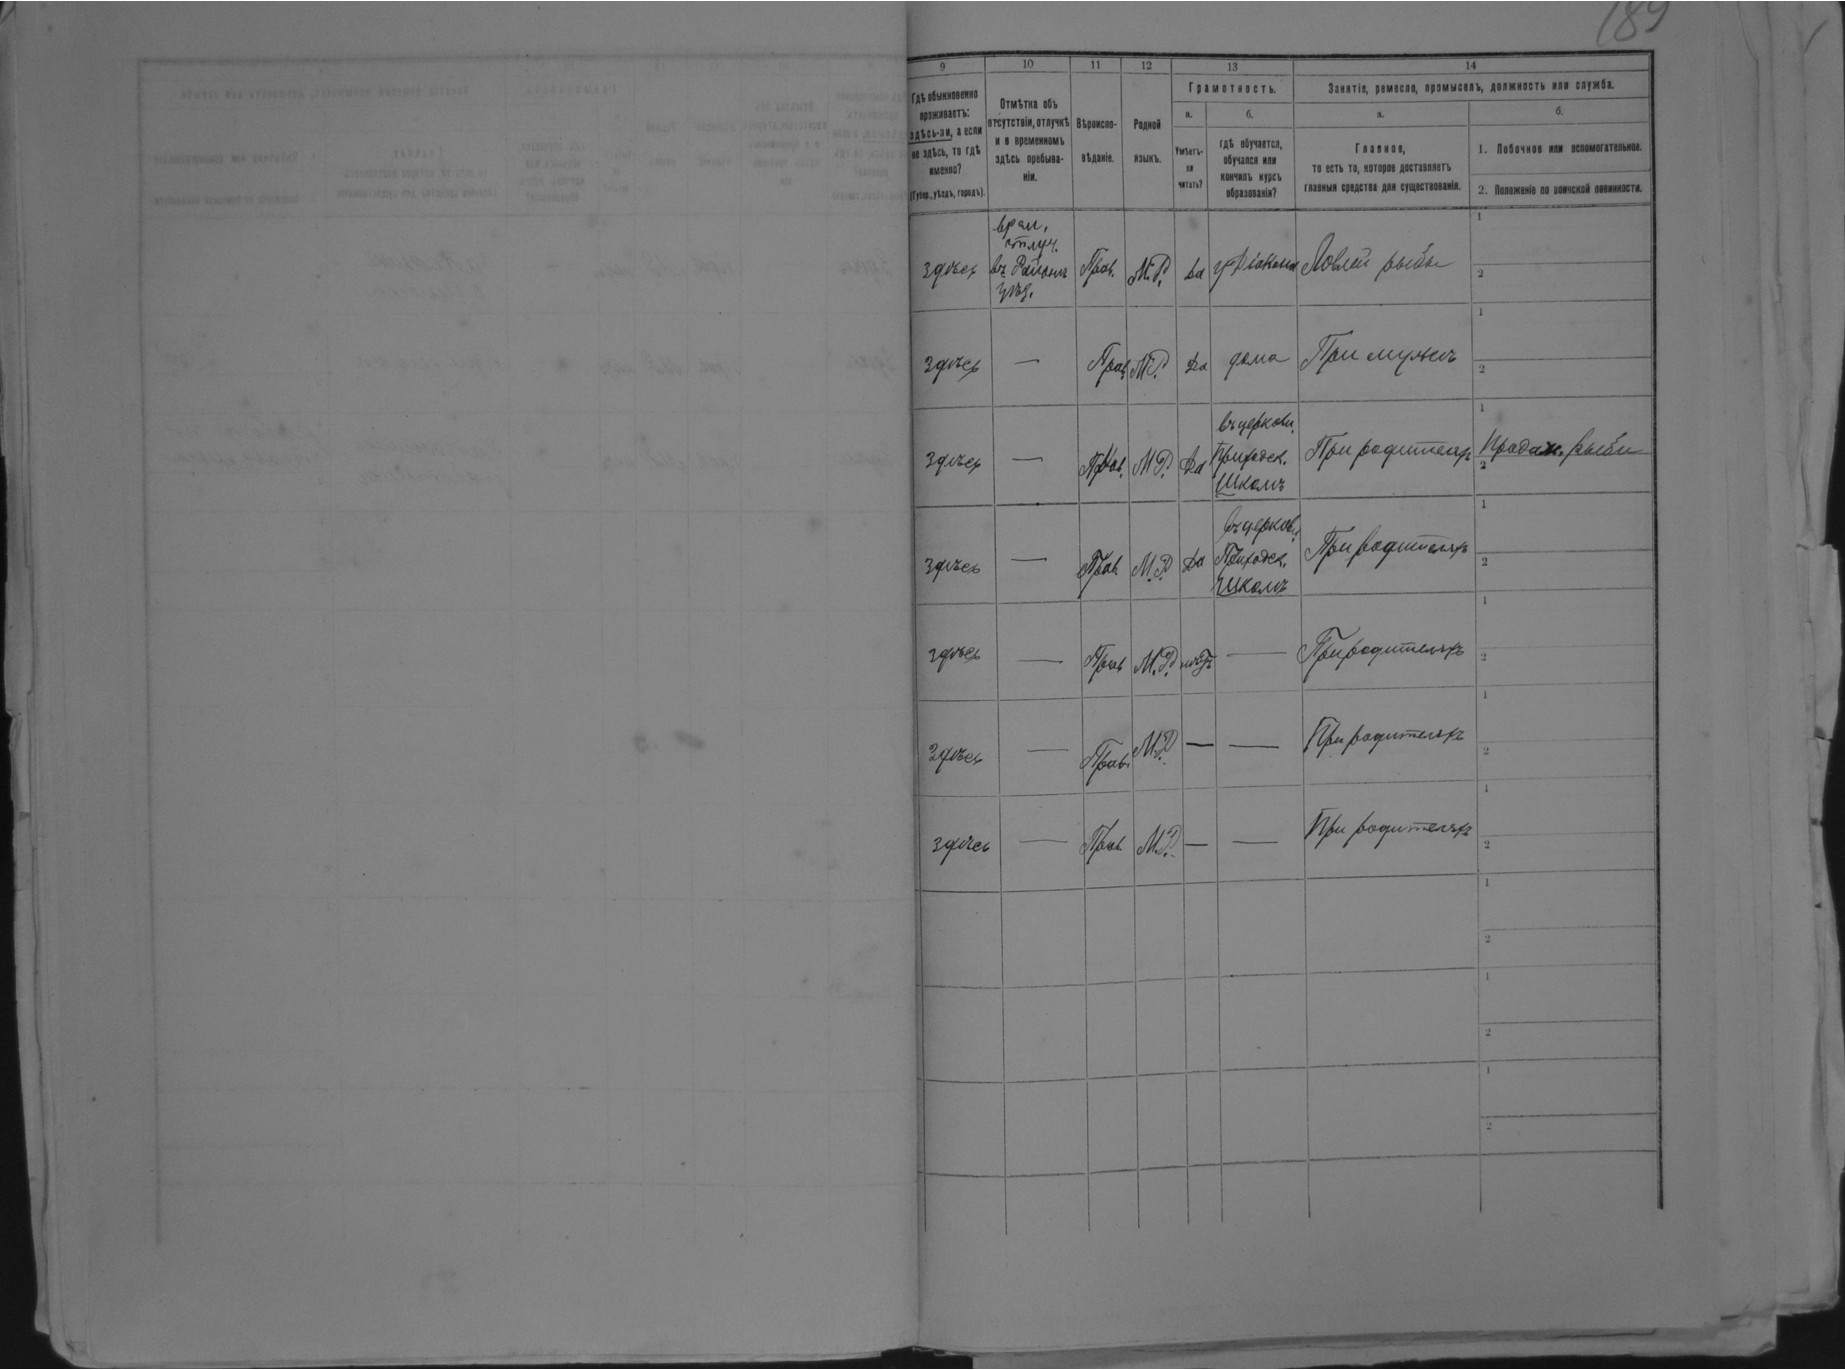 189
9 10 11 12 13 14
Гдѣ обыкновенно проживаетъ: здѣсь-ли, а если не здѣсь, то гдѣ именно? (Губер., уѣздъ, городъ).
Отмѣтка объ отсутствіи, отлучкѣ и о временномъ здѣсь пребываніи.
Вѣроисповѣданіе.
Родной языкъ.
Грамотность.
а.
Умѣетъ-ли читать?
б.
гдѣ обучается, обучался или кончилъ курсъ образованія?
Занятіе, ремесло, промыселъ, должность или служба.
а.
Главное,
то есть то, которое доставляетъ главныя средства для существованія.
б.
1. Побочное или вспомогательное.
2. Положеніе по воинской повинности.
здѣсь врем. отлуч. въ уѣзд. Прав. М.Р. да у Діакона Ловлей рыбы 1
2
здѣсь — Прав. М.Р. да дома При мужѣ 1
2
здѣсь — Прав. М.Р. да въ церковн. Приходск. Школѣ При родителяхъ 1 Продаж. рыбы
2
здѣсь — Прав. М.Р. да въ церковн. Приходск. Школѣ При родителяхъ 1
2
здѣсь — Прав. М.Р. нѣтъ — При родителяхъ 1
2
здѣсь — Прав. М.Р. — — При родителяхъ 1
2
здѣсь — Прав. М.Р. — — При родителяхъ 1
2
1
2
1
2
1
2